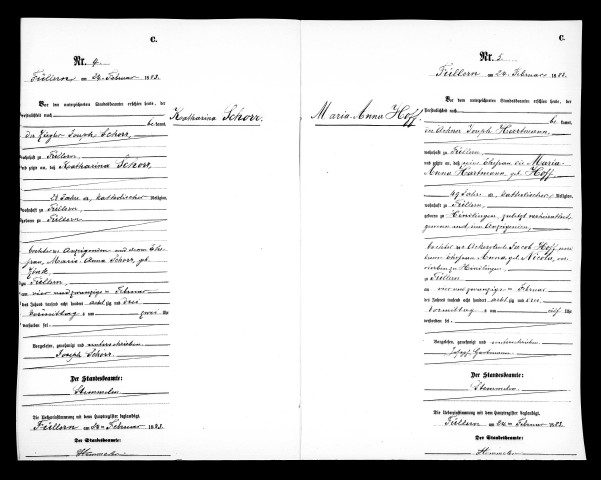 C.
Nr. 4.
Füllern, am 24. Februar 1883.
Vor dem unterzeichneten Standesbeamten erschien heute, der
Persönlichkeit nach
be kannt,
der Ziegler Joseph Schorr,
wohnhaft zu Füllern,
und zeigte an, daß Katharina Schorr,
Katharina Schorr.
28 Jahre alt, katholischer Religion,
wohnhaft zu Füllern,
geboren zu Füllern
Tochter des Anzeigenden und dessen Ehe-
frau, Maria-Anna Schorr, geb.
zu Füllern,
am vier und zwanzigsten Februar
des Jahres tausend acht hundert achtzig und drei
Vormittag s um zwei Uhr
verstorben sei.
Vorgelesen, genehmigt und unterschrieben
Joseph Schorr.
Der Standesbeamte:
Stemmelen
Die Uebereinstimmung mit dem Hauptregister beglaubigt.
Füllern am 24ten Februar 1883.
Der Standesbeamte:
Stemmelen
C.
Nr. 5.
Füllern, am 24. Februar 1883.
Vor dem unterzeichneten Standesbeamten erschien heute, der
Persönlichkeit nach
be kannt,
der Ackerer Joseph Hartmann,
wohnhaft zu Füllern,
und zeigte an, daß seine Ehefrau die Maria-
Anna Hartmann, geb. Hoff,
Maria-Anna Hoff.
49 Jahre alt, katholischer Religion,
wohnhaft zu Füllern,
geboren zu Hindlingen, zuletzt verheirathet
gewesen mit dem Anzeigenden,
Tochter des Jacob Hoff und
dessen Ehefrau Anna, geb. Nicola, ver-
storben zu Hindlingen,
zu Füllern
am vier und zwanzigsten Februar
des Jahres tausend acht hundert achtzig und drei
Vormittag s um Uhr
verstorben sei.
Vorgelesen, genehmigt und unterschrieben
Joseph Hartmann
Der Standesbeamte:
Stemmelen
Die Uebereinstimmung mit dem Hauptregister beglaubigt.
Füllern am 24ten Februar 1883.
Der Standesbeamte:
Stemmelen